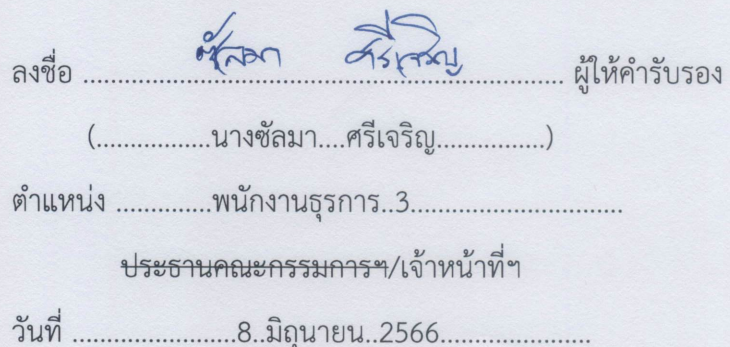 ลงชื่อ ........ซัลมา ศรีเจริญ........ ผู้ให้คำรับรอง
(.................นางซัลมา....ศรีเจริญ................)
ตำแหน่ง ..............พนักงานธุรการ..3................................
ประธานคณะกรรมการฯ/เจ้าหน้าที่ฯ
วันที่ .........................8..มิถุนายน..2566.......................